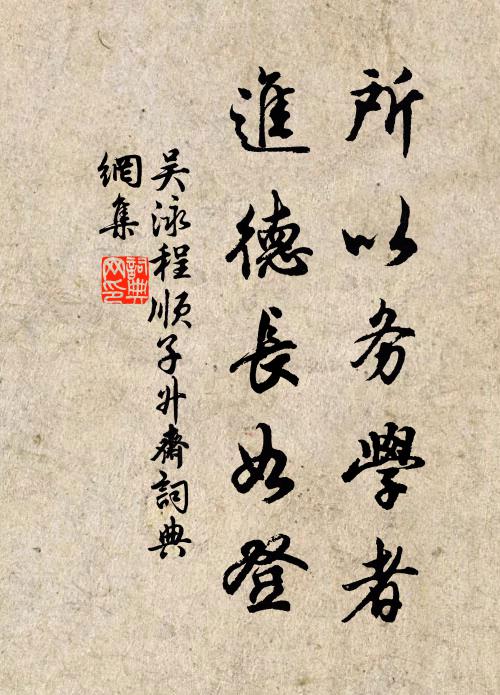 所以务學者
進德長如登
吴泳程順子升齋詞典
網集
詞典網印